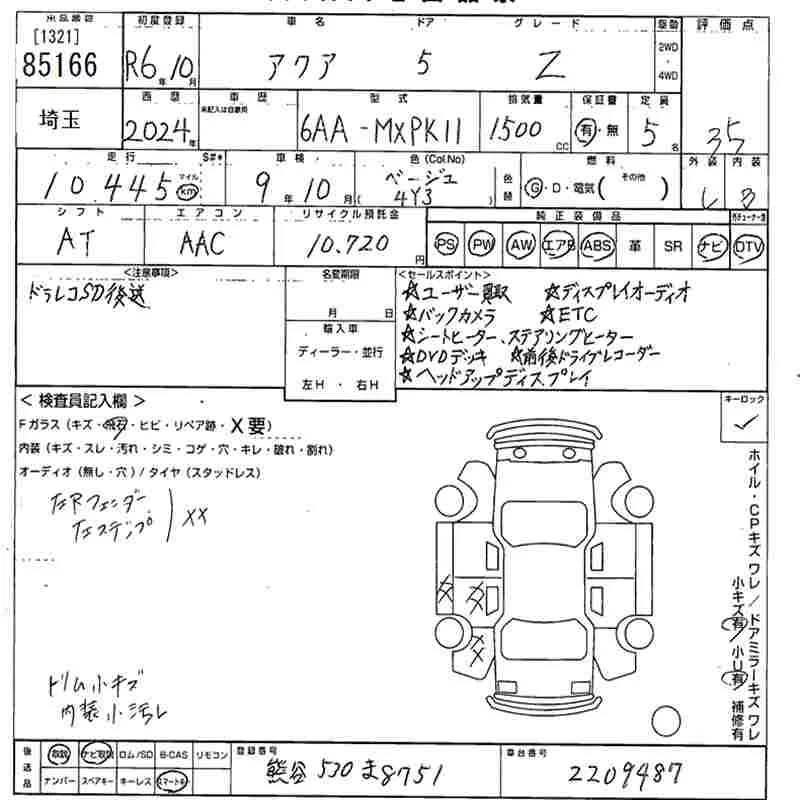 出品番号 初度登録 車名 ドア グレード 駆動 評価点
[1321]
85166 R6年10月 アクア 5 Z 2WD・4WD
埼玉 西暦 車歴 型式 排気量 保証書 定員
未記入は自家用
2024年 6AA-MXPK11 1500CC 有・無 5名 3.5
走行 S#* 車検 色(Col.No) 燃料 外装 内装
10.445 マイル km 9年10月 ベージュ 4Y3 色替 G・D・電気(その他) C B
シフト エアコン リサイクル預託金 純正装備品
AT AAC 10.720円 PS PW AW エアB ABS 革 SR ナビ DTV
<注意事項> 名変期限 <セールスポイント>
ドラレコSD後送 月 日
☆ユーザー買取 ☆ディスプレイオーディオ
☆バックカメラ ☆ETC
輸入車 ☆シートヒーター、ステアリングヒーター
ディーラー・並行 ☆DVDデッキ ☆前後ドライブレコーダー
左H・右H ☆ヘッドアップディスプレイ
<検査員記入欄> キーロック
Fガラス(キズ・飛石・ヒビ・リペア跡・X要)
内装(キズ・スレ・汚れ・シミ・コゲ・穴・キレ・破れ・割れ)
オーディオ(無し・穴)/タイヤ(スタッドレス)
左Rフェンダー
左ステップ XX
ホイル・CPキズワレ/ドアミラーキズワレ
小キズ有 小U有 補修有
ドリム小キズ
内装小汚レ
後送品 取説 ナビ取説 ロム/SD B-CAS リモコン 登録番号 車台番号
ナンバー スペアキー キーレス スマートキー 熊谷 530 ま8751 2209487